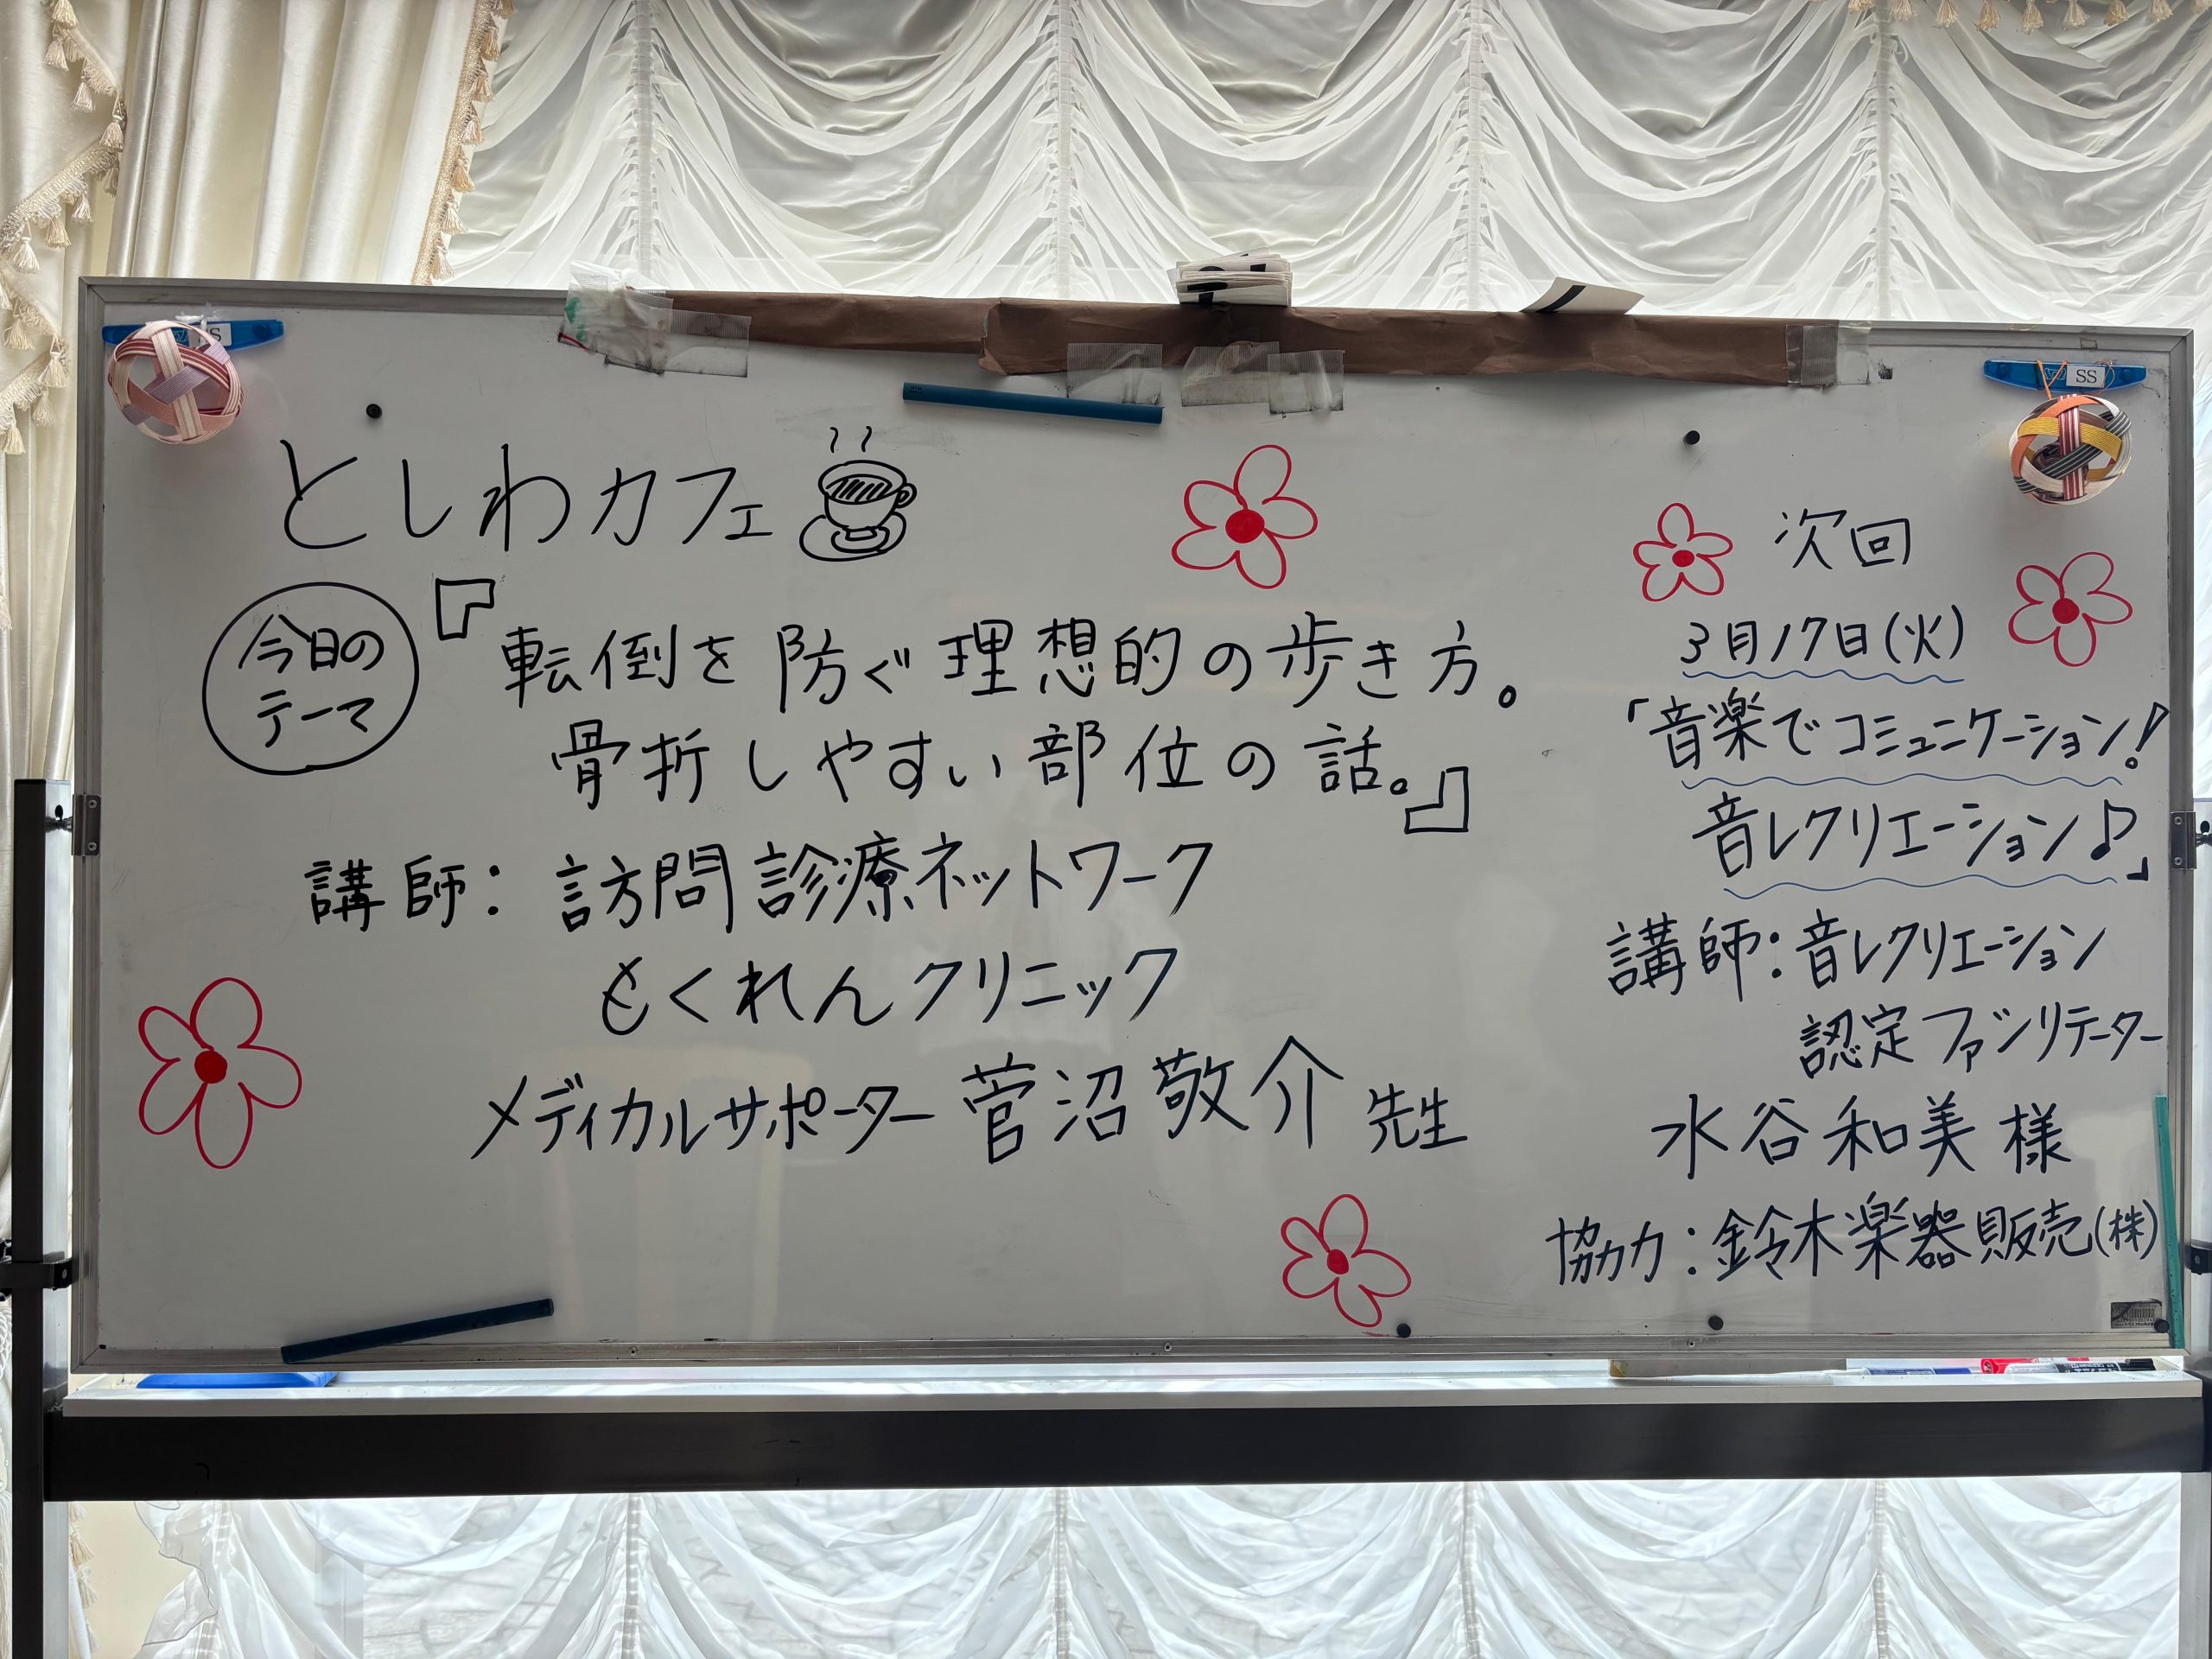 としわカフェ
今日の
テーマ
『転倒を防ぐ理想的の歩き方。
骨折しやすい部位の話。』
講師：訪問診療ネットワーク
もくれんクリニック
メディカルサポーター菅沼敬介先生
次回
3月17日(火)
「音楽でコミュニケーション!
音レクリエーション♪」
講師：音レクリエーション
認定ファシリテーター
水谷和美様
協力：鈴木楽器販売(株)
SS